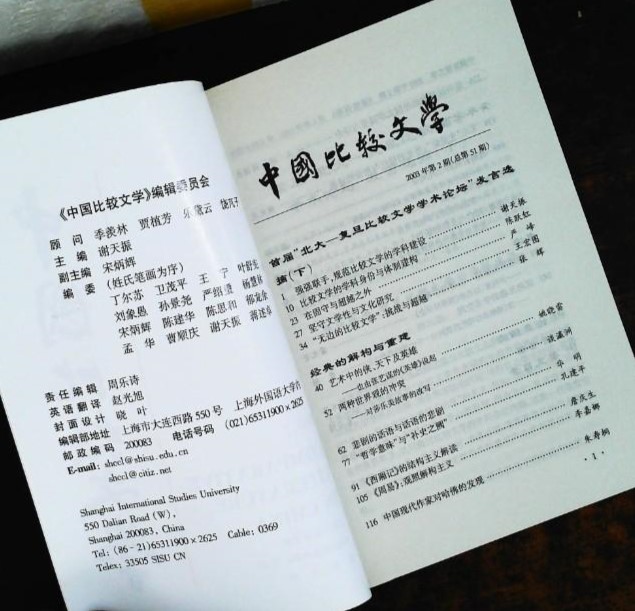 《中国比较文学》编辑委员会
顾 问 季羡林 贾植芳 乐黛云 饶芃子
主 编 谢天振
副主编 宋炳辉
编 委 (姓氏笔画为序)
丁尔苏 卫茂平 王 宁 叶舒宪
刘象愚 孙景尧 严绍璗 杨慧林
宋炳辉 陈建华 陈思和
孟 华 曹顺庆 谢天振 蒋述卓
责任编辑 周乐诗
英语翻译 赵光旭
封面设计 晓 叶
编辑部地址 上海市大连西路550号 上海外国语大学
邮政编码 200083 电话号码 (021)65311900×2625
E-mail: shccl@shisu.edu.cn
shccl@citiz.net
Shanghai International Studies University
550 Dalian Road (W),
Shanghai 200083, China
Tel: (86-21)65311900×2625 Cable; 0369
Telex: 33505 SISU CN
中國比较文学
2003年第2期(总第51期)
首届"北大—复旦比较文学学术论坛"发言选
摘(下)
1 强强联手,规范比较文学的学科建设 谢天振
10 比较文学的学科身份与体制建构 陈跃红
23 在固守与超越之外 严 锋
27 坚守文学性与文化研究 王宏图
34 "无边的比较文学":挑战与超越 张 辉
经典的解构与重建
40 艺术中的侠、天下及英雄 姚晓雷
——也由张艺谋的《英雄》说起
52 两种世界观的冲突 谈瀛洲
——对莎乐美故事的改写
62 悲剧的话语与话语的悲剧 华 明
77 "哲学意味"与"补史之阙" 孔建平
91 《西厢记》的结构主义解读 詹庆生
105 《周易》:观照解构主义 李嘉娜
116 中国现代作家对哈佛的发现 朱寿桐
·1·